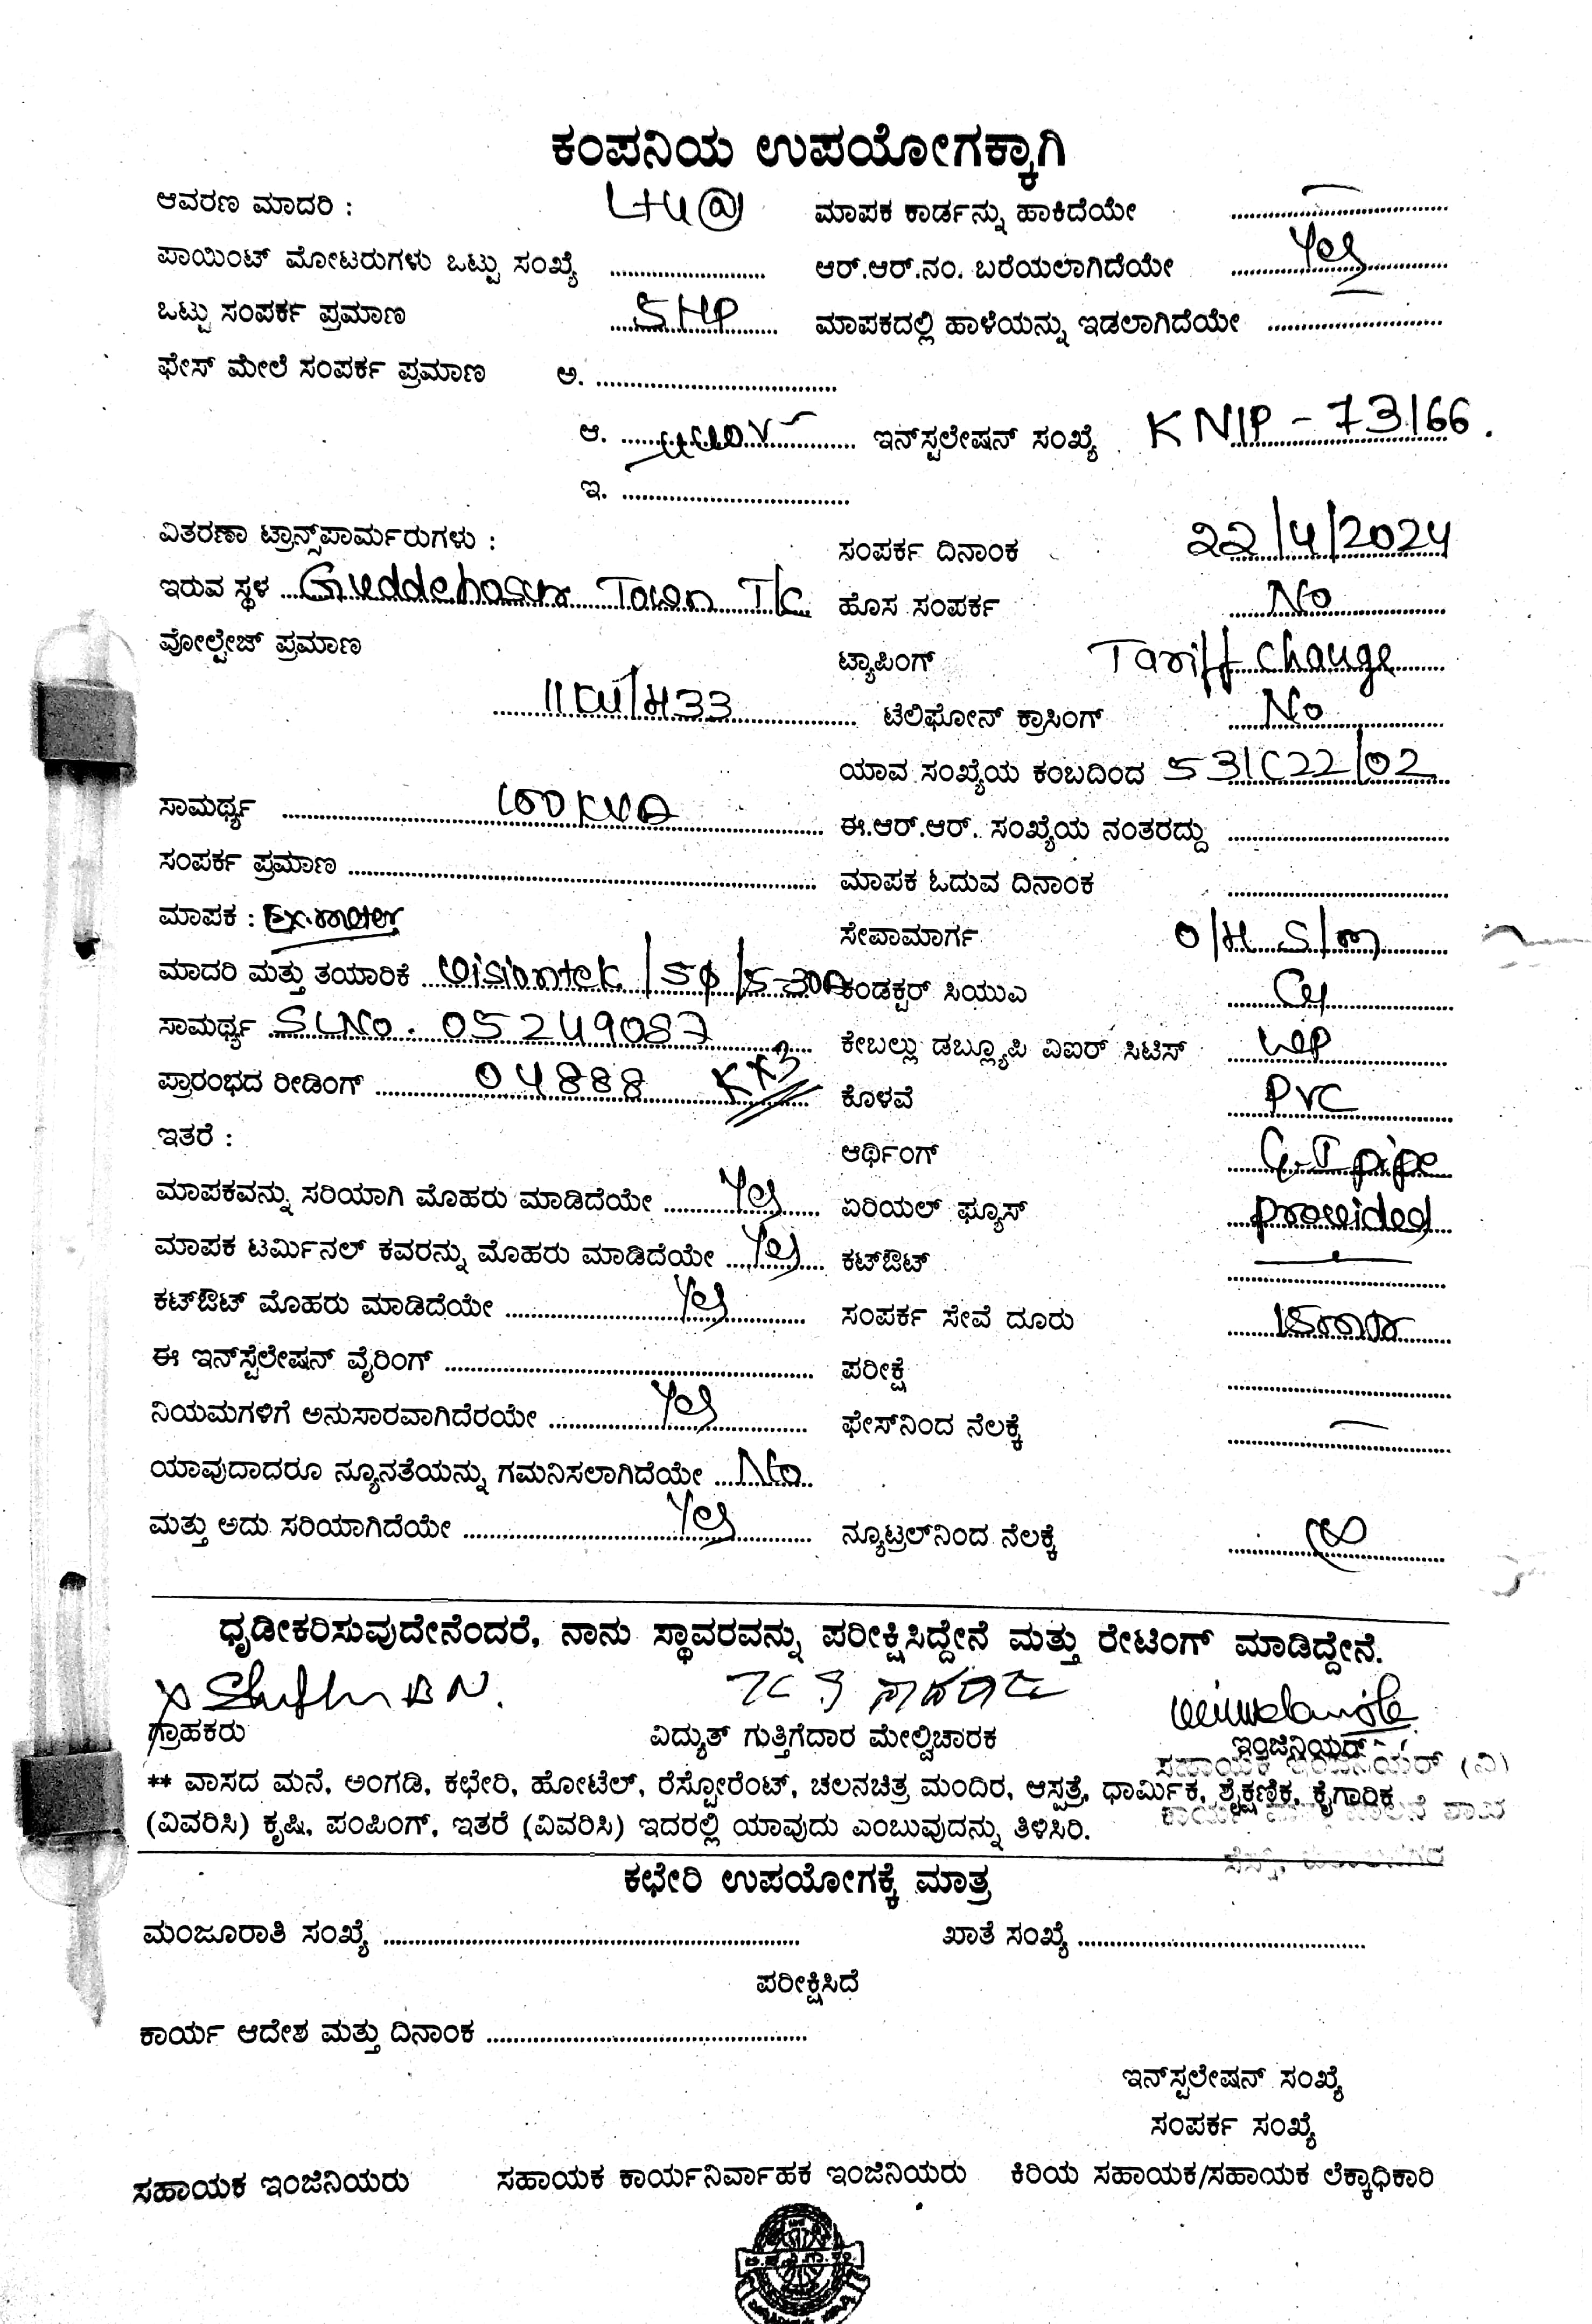 ಕಂಪನಿಯ ಉಪಯೋಗಕ್ಕಾಗಿ
ಆವರಣ ಮಾದರಿ : LT4(a) ಮಾಪಕ ಕಾರ್ಡನ್ನು ಹಾಕಿದೆಯೇ
ಪಾಯಿಂಟ್ ಮೋಟರುಗಳು ಒಟ್ಟು ಸಂಖ್ಯೆ ಆರ್.ಆರ್.ನಂ. ಬರೆಯಲಾಗಿದೆಯೇ Yes
ಒಟ್ಟು ಸಂಪರ್ಕ ಪ್ರಮಾಣ 5 HP ಮಾಪಕದಲ್ಲಿ ಹಾಳೆಯನ್ನು ಇಡಲಾಗಿದೆಯೇ
ಫೇಸ್ ಮೇಲೆ ಸಂಪರ್ಕ ಪ್ರಮಾಣ ಅ.
ಆ. ಇನ್‌ಸ್ಟಲೇಷನ್ ಸಂಖ್ಯೆ KNIP - 73166
ಇ.
ವಿತರಣಾ ಟ್ರಾನ್ಸ್‌ಪಾರ್ಮರುಗಳು : ಸಂಪರ್ಕ ದಿನಾಂಕ 22/4/2024
ಇರುವ ಸ್ಥಳ Guddehosur Town T/C ಹೊಸ ಸಂಪರ್ಕ No
ವೋಲ್ಟೇಜ್ ಪ್ರಮಾಣ ಟ್ಯಾಪಿಂಗ್ Tariff Change
ಟೆಲಿಫೋನ್ ಕ್ರಾಸಿಂಗ್ No
ಯಾವ ಸಂಖ್ಯೆಯ ಕಂಬದಿಂದ 531C22/02
ಸಾಮರ್ಥ್ಯ 100 KVA ಈ.ಆರ್.ಆರ್. ಸಂಖ್ಯೆಯ ನಂತರದ್ದು
ಸಂಪರ್ಕ ಪ್ರಮಾಣ ಮಾಪಕ ಓದುವ ದಿನಾಂಕ
ಮಾಪಕ : Ex. meter ಸೇವಾಮಾರ್ಗ O/H S/m
ಮಾದರಿ ಮತ್ತು ತಯಾರಿಕೆ Visiontek ಕಂಡಕ್ಟರ್ ಸಿಯುಎ
ಸಾಮರ್ಥ್ಯ SL No. 05249087 ಕೇಬಲ್ಲು ಡಬ್ಲ್ಯೂಪಿ ವಿಐರ್ ಸಿಟಿಸ್ WP
ಪ್ರಾರಂಭದ ರೀಡಿಂಗ್ 04888 ಕೊಳವೆ PVC
ಇತರೆ : ಆರ್ಥಿಂಗ್ G.I pipe
ಮಾಪಕವನ್ನು ಸರಿಯಾಗಿ ಮೊಹರು ಮಾಡಿದೆಯೇ Yes ಏರಿಯಲ್ ಫ್ಯೂಸ್ provided
ಮಾಪಕ ಟರ್ಮಿನಲ್ ಕವರನ್ನು ಮೊಹರು ಮಾಡಿದೆಯೇ Yes ಕಟ್‌ಔಟ್
ಕಟ್‌ಔಟ್ ಮೊಹರು ಮಾಡಿದೆಯೇ Yes ಸಂಪರ್ಕ ಸೇವೆ ದೂರು
ಈ ಇನ್‌ಸ್ಟೆಲೇಷನ್ ವೈರಿಂಗ್ ಪರೀಕ್ಷೆ
ನಿಯಮಗಳಿಗೆ ಅನುಸಾರವಾಗಿದೆರಯೇ Yes ಫೇಸ್‌ನಿಂದ ನೆಲಕ್ಕೆ
ಯಾವುದಾದರೂ ನ್ಯೂನತೆಯನ್ನು ಗಮನಿಸಲಾಗಿದೆಯೇ No
ಮತ್ತು ಅದು ಸರಿಯಾಗಿದೆಯೇ Yes ನ್ಯೂಟ್ರಲ್‌ನಿಂದ ನೆಲಕ್ಕೆ
ಧೃಡೀಕರಿಸುವುದೇನೆಂದರೆ, ನಾನು ಸ್ಥಾವರವನ್ನು ಪರೀಕ್ಷಿಸಿದ್ದೇನೆ ಮತ್ತು ರೇಟಿಂಗ್ ಮಾಡಿದ್ದೇನೆ.
ಗ್ರಾಹಕರು ವಿದ್ಯುತ್ ಗುತ್ತಿಗೆದಾರ ಮೇಲ್ವಿಚಾರಕ ಇಂಜಿನಿಯರ್
** ವಾಸದ ಮನೆ, ಅಂಗಡಿ, ಕಛೇರಿ, ಹೋಟೆಲ್, ರೆಸ್ಟೋರೆಂಟ್, ಚಲನಚಿತ್ರ ಮಂದಿರ, ಆಸ್ಪತ್ರೆ, ಧಾರ್ಮಿಕ, ಶೈಕ್ಷಣಿಕ, ಕೈಗಾರಿಕ
(ವಿವರಿಸಿ) ಕೃಷಿ, ಪಂಪಿಂಗ್, ಇತರೆ (ವಿವರಿಸಿ) ಇದರಲ್ಲಿ ಯಾವುದು ಎಂಬುವುದನ್ನು ತಿಳಿಸಿರಿ.
ಕಛೇರಿ ಉಪಯೋಗಕ್ಕೆ ಮಾತ್ರ
ಮಂಜೂರಾತಿ ಸಂಖ್ಯೆ ಖಾತೆ ಸಂಖ್ಯೆ
ಪರೀಕ್ಷಿಸಿದೆ
ಕಾರ್ಯ ಆದೇಶ ಮತ್ತು ದಿನಾಂಕ
ಇನ್‌ಸ್ಟಲೇಷನ್ ಸಂಖ್ಯೆ
ಸಂಪರ್ಕ ಸಂಖ್ಯೆ
ಸಹಾಯಕ ಇಂಜಿನಿಯರು ಸಹಾಯಕ ಕಾರ್ಯನಿರ್ವಾಹಕ ಇಂಜಿನಿಯರು ಕಿರಿಯ ಸಹಾಯಕ/ಸಹಾಯಕ ಲೆಕ್ಕಾಧಿಕಾರಿ